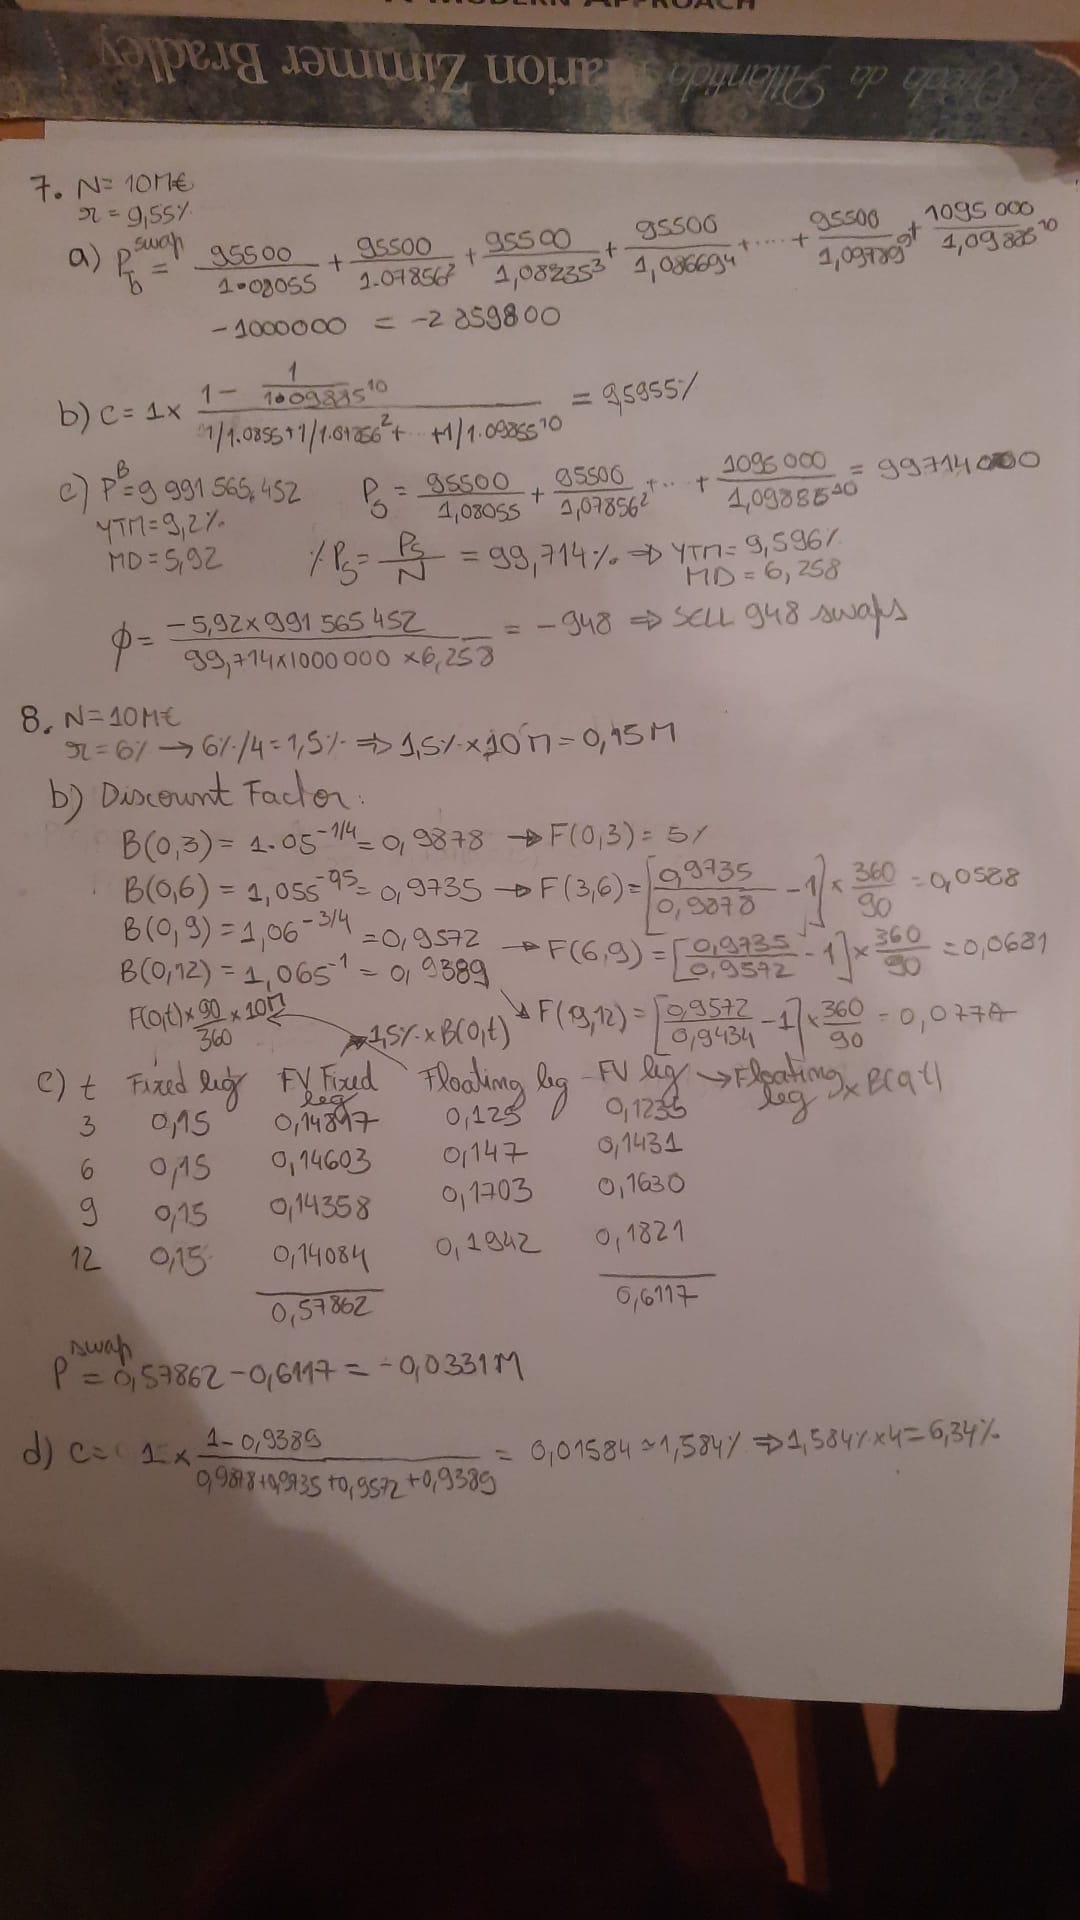 A MODERN APPROACH
Queda da Atlântida Marion Zimmer Bradley
7. N = 10M€
r = 9,55%
a) P_to^swap = 95500/1.08055 + 95500/1.07856² + 95500/1,082353³ + 95500/1,086694⁴ + ..... + 95500/1,09789⁹ + 1095 000/1,09885¹⁰
- 1000000 = -2 859800
b) C = 1 x (1 - 1/1.09885¹⁰) / (1/1.0855 + 1/1.07856² + .. +1/1.09855¹⁰) = 9,5955%
c) P^B = 9 991 565,452 P_S = 95500/1,08055 + 95500/1,07856² + .. + 1095 000/1,09885¹⁰ = 99714000
YTM = 9,2%
MD = 5,92 %P_S = P_S/N = 99,714% ⇒ YTM = 9,596%
MD = 6,258
ϕ = (-5,92 x 991 565 452) / (99,714 x 1000 000 x 6,258) = -948 ⇒ SELL 948 swaps
8. N = 10M€
r = 6% → 6%/4 = 1,5% ⇒ 1,5% x 10M = 0,15M
b) Discount Factor:
B(0,3) = 1.05^-1/4 = 0,9878 → F(0,3) = 5%
B(0,6) = 1,055^-0,5 = 0,9735 → F(3,6) = [0,9735/0,9878 - 1] x 360/90 = 0,0588
B(0,9) = 1,06^-3/4 = 0,9572 → F(6,9) = [0,9735/0,9572 - 1] x 360/90 = 0,0681
B(0,12) = 1,065^-1 = 0,9389
F(0,t) x 90/360 x 10M 1,5% x B(0,t) F(9,12) = [0,9572/0,9434 - 1] x 360/90 = 0,077
c) t Fixed leg FV Fixed leg Floating leg FV leg → Floating leg x B(0,t)
3 0,15 0,14817 0,125 0,1235
6 0,15 0,14603 0,147 0,1431
9 0,15 0,14358 0,1703 0,1630
12 0,15 0,14084 0,1942 0,1821
0,57862 0,6117
P^swap = 0,57862 - 0,6117 = -0,0331M
d) C = 1 x (1 - 0,9389) / (0,9878 + 0,9735 + 0,9572 + 0,9389) = 0,01584 ≃ 1,584% ⇒ 1,584% x 4 = 6,34%